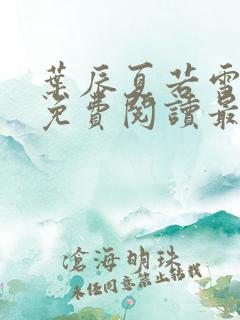 葉辰夏若雪
免費閱讀最
滄海明珠
未经同意禁止转载